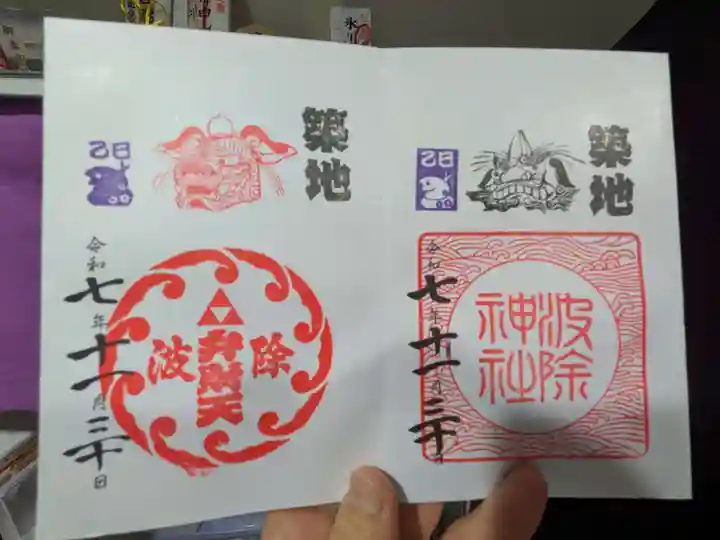 築地
乙巳
令和七年十一月三十日
波除
弁財天
築地
乙巳
令和七年十一月三十日
波除
神社